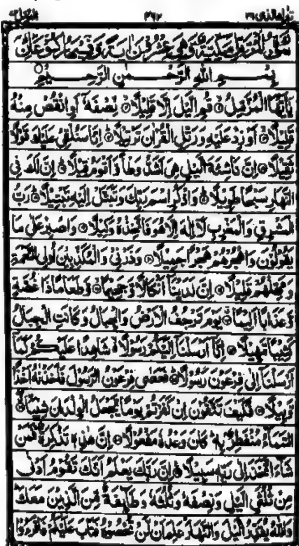 سورة المزمل مكية وهي عشرون آية وفيها ركوعان
بِسْمِ اللهِ الرَّحْمٰنِ الرَّحِيْمِ
يٰٓاَيُّهَا الْمُزَّمِّلُ قُمِ الَّيْلَ اِلَّا قَلِيْلًا نِّصْفَهٗٓ اَوِ انْقُصْ مِنْهُ
قَلِيْلًا اَوْ زِدْ عَلَيْهِ وَرَتِّلِ الْقُرْاٰنَ تَرْتِيْلًا اِنَّا سَنُلْقِيْ عَلَيْكَ قَوْلًا
ثَقِيْلًا اِنَّ نَاشِئَةَ الَّيْلِ هِيَ اَشَدُّ وَطْاً وَّاَقْوَمُ قِيْلًا اِنَّ لَكَ فِي
النَّهَارِ سَبْحًا طَوِيْلًا وَاذْكُرِ اسْمَ رَبِّكَ وَتَبَتَّلْ اِلَيْهِ تَبْتِيْلًا رَبُّ
الْمَشْرِقِ وَالْمَغْرِبِ لَآ اِلٰهَ اِلَّا هُوَ فَاتَّخِذْهُ وَكِيْلًا وَاصْبِرْ عَلٰى مَا
يَقُوْلُوْنَ وَاهْجُرْهُمْ هَجْرًا جَمِيْلًا وَذَرْنِيْ وَالْمُكَذِّبِيْنَ اُولِي النَّعْمَةِ
وَمَهِّلْهُمْ قَلِيْلًا اِنَّ لَدَيْنَآ اَنْكَالًا وَّجَحِيْمًا وَّطَعَامًا ذَا غُصَّةٍ
وَّعَذَابًا اَلِيْمًا يَوْمَ تَرْجُفُ الْاَرْضُ وَالْجِبَالُ وَكَانَتِ الْجِبَالُ
كَثِيْبًا مَّهِيْلًا اِنَّآ اَرْسَلْنَآ اِلَيْكُمْ رَسُوْلًا شَاهِدًا عَلَيْكُمْ كَمَآ
اَرْسَلْنَآ اِلٰى فِرْعَوْنَ رَسُوْلًا فَعَصٰى فِرْعَوْنُ الرَّسُوْلَ فَاَخَذْنٰهُ اَخْذًا
وَّبِيْلًا فَكَيْفَ تَتَّقُوْنَ اِنْ كَفَرْتُمْ يَوْمًا يَّجْعَلُ الْوِلْدَانَ شِيْبًا
السَّمَآءُ مُنْفَطِرٌ بِهٖ كَانَ وَعْدُهٗ مَفْعُوْلًا اِنَّ هٰذِهٖ تَذْكِرَةٌ فَمَنْ
شَآءَ اتَّخَذَ اِلٰى رَبِّهٖ سَبِيْلًا اِنَّ رَبَّكَ يَعْلَمُ اَنَّكَ تَقُوْمُ اَدْنٰى
مِنْ ثُلُثَيِ الَّيْلِ وَنِصْفَهٗ وَثُلُثَهٗ وَطَآئِفَةٌ مِّنَ الَّذِيْنَ مَعَكَ
وَاللهُ يُقَدِّرُ الَّيْلَ وَالنَّهَارَ عَلِمَ اَنْ لَّنْ تُحْصُوْهُ فَتَابَ عَلَيْكُمْ فَاقْرَءُوْا